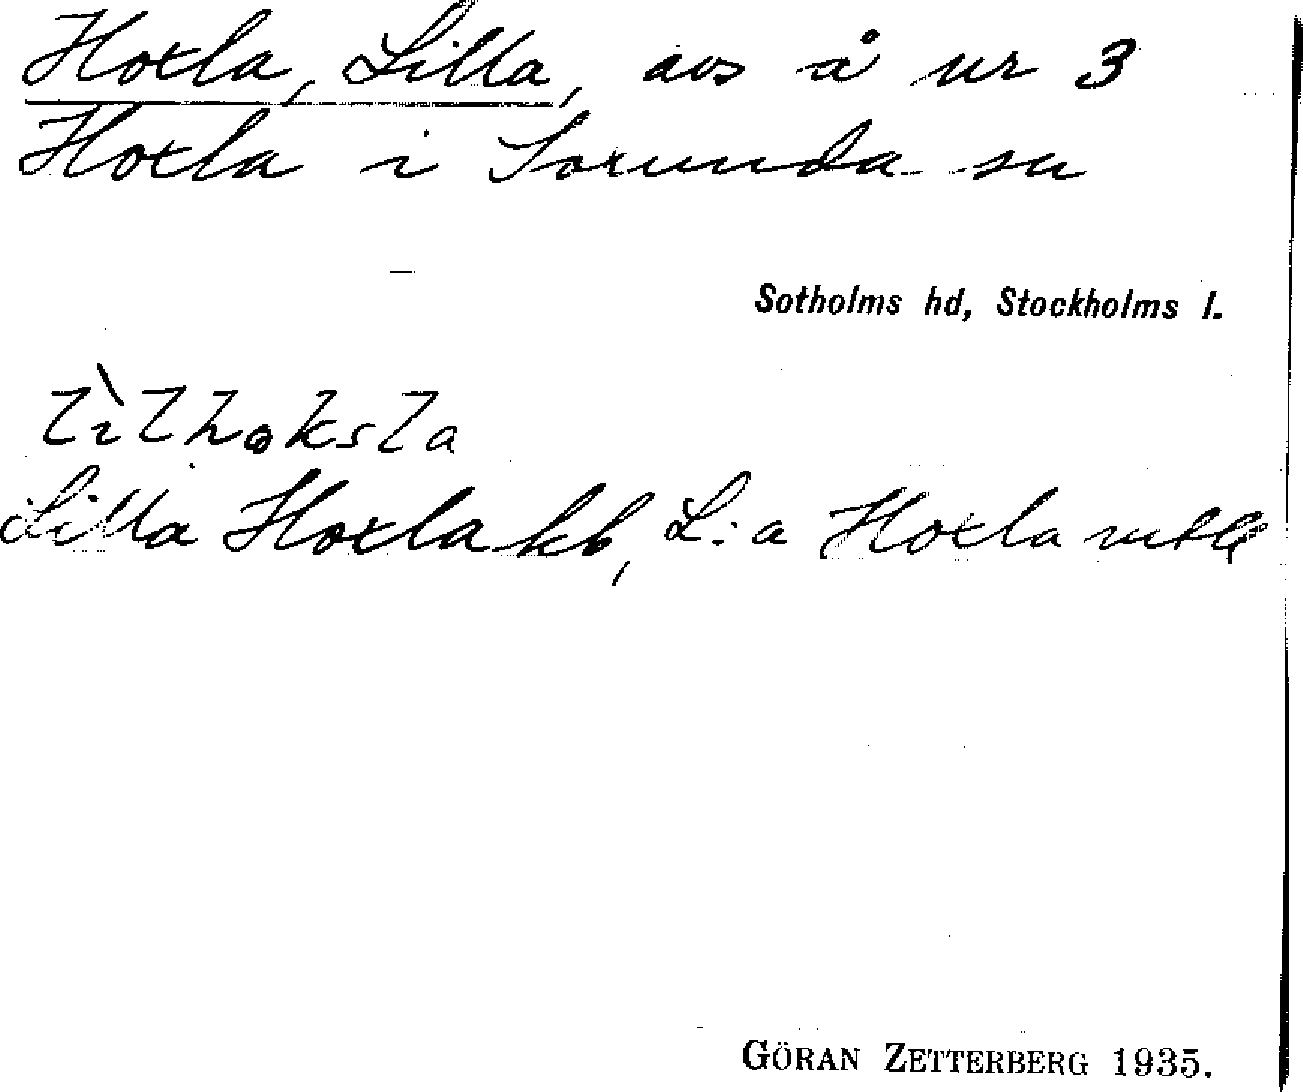 Hoxla, Lilla, avs å nr 3
Hoxla i Sorunda sn
Sotholms hd, Stockholms l.
Lilla Hoxla kb, L:a Hoxla mtb
GÖRAN ZETTERBERG 1935.